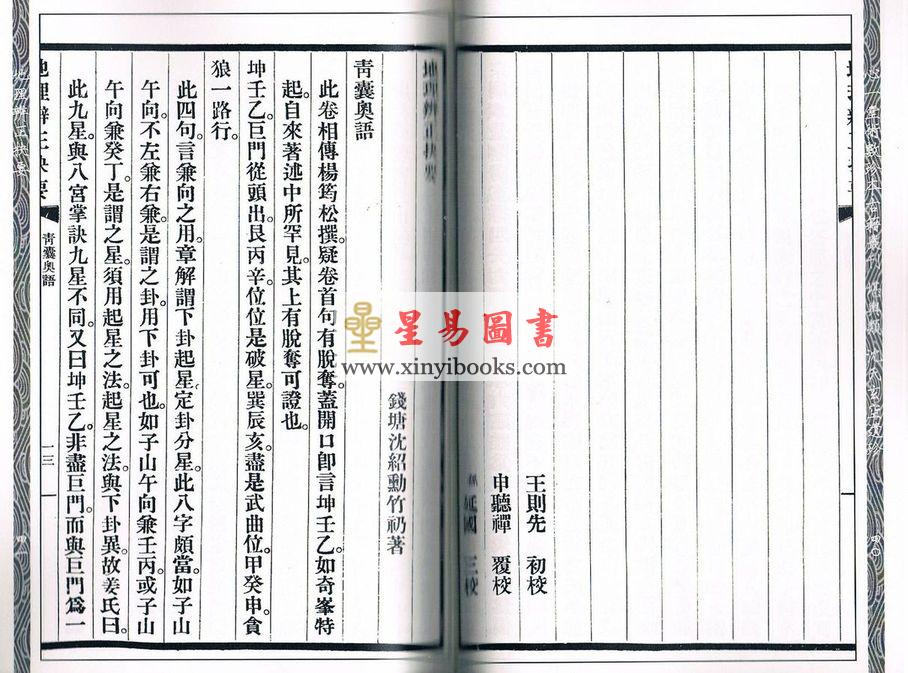 王則先 初校
申聽禪 覆校
延國 三校
地理辨正抉要
錢塘沈紹勳竹礽著
青囊奧語
此卷相傳楊筠松撰。疑卷首句有脫奪。蓋開口即言坤壬乙。如奇峯特
起。自來著述中所罕見。其上有脫奪可證也。
坤壬乙巨門從頭出。艮丙辛。位位是破星。巽辰亥。盡是武曲位。甲癸申。貪
狼一路行。
此四句言兼向之用。章解謂下卦起星。定卦分星。此八字頗當。如子山
午向。不左兼右兼。是謂之卦。用下卦可也。如子山午向兼壬丙。或子山
午向兼癸丁。是謂之星。須用起星之法。起星之法。與下卦異。故姜氏曰。
此九星與八宮掌訣九星不同。又曰坤壬乙。非盡巨門。而與巨門爲一
地理辨正抉要
青囊奧語
一三
星易圖書
www.xinyibooks.com